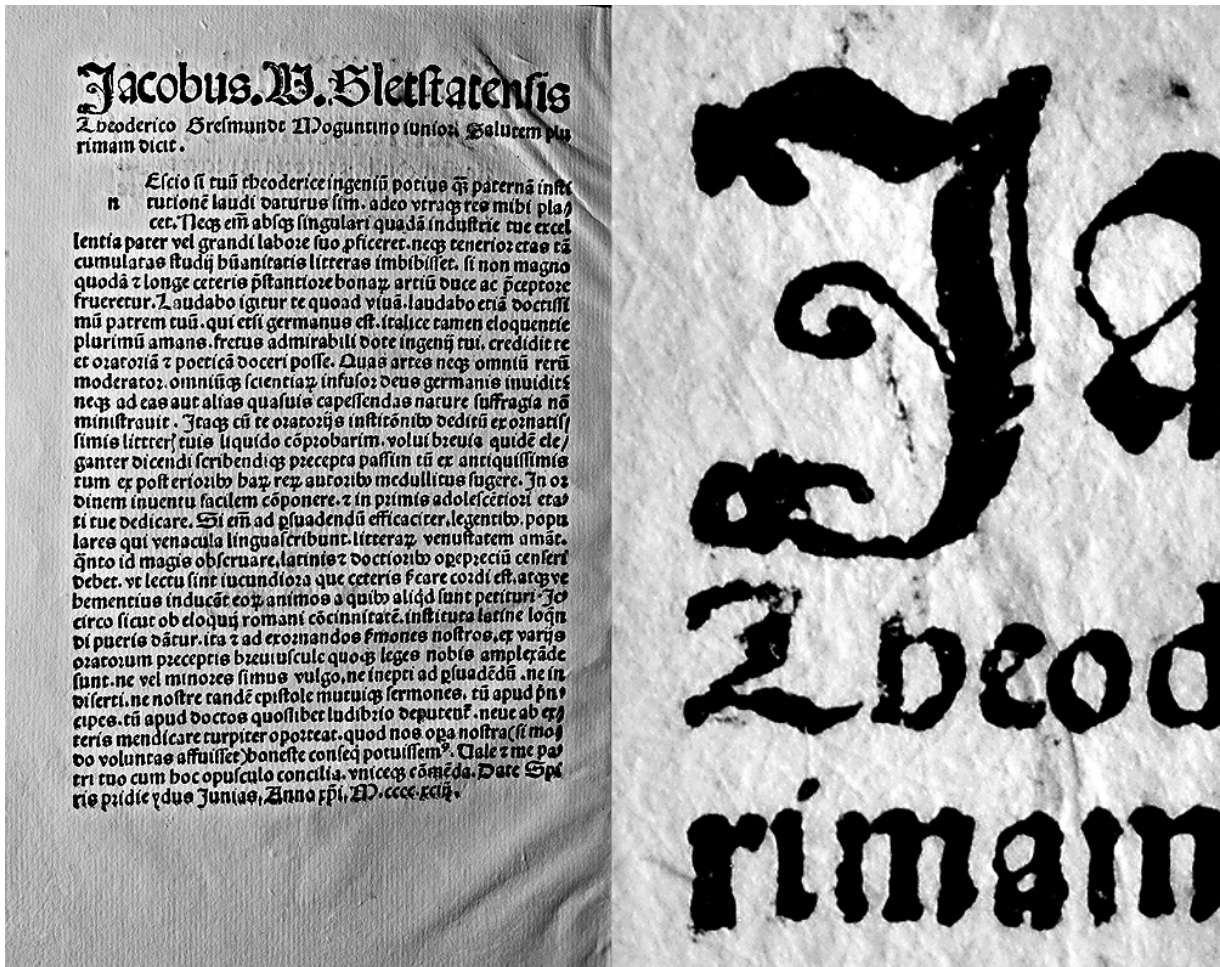 Jacobus.W.Sletstatensis
Theoderico Gresmundt Moguntino iuniori Salutem plu
rimam dicit.
Escio si tuū theoderice ingeniū potius q̄ȝ paternā insti
n tutionē laudi daturus sim. adeo vtraqȝ res mihi pla/
cet. Neqȝ em̄ absqȝ singulari quadā industrie tue excel
lentia pater vel grandi labore suo ꝓficeret. neqȝ tenerior etas tā
cumulatas studij hūanitatis litteras imbibisset. si non magno
quodā ⁊ longe ceteris p̄stantiore bonaꝝ artiū duce ac p̄ceptore
frueretur. Laudabo igitur te quoad viuā. laudabo etiā doctissi
mū patrem tuū. qui etsi germanus est. italice tamen eloquentie
plurimū amans. fretus admirabili dote ingenij tui. credidit te
et oratoriā ⁊ poeticā doceri posse. Quas artes neqȝ omniū rerū
moderator. omniūqȝ scientiaꝝ infusor deus germanis inuidit:
neqȝ ad eas aut alias quasuis capessendas nature suffragia nō
ministrauit. Itaqȝ cū te oratorijs institōnibꝰ deditū ex ornatis/
simis litterꝭ tuis liquido cōprobarim. volui breuia quidē ele/
ganter dicendi scribendiqȝ precepta passim tū ex antiquissimis
tum ex posterioribꝰ haꝝ reꝝ autoribꝰ medullitus sugere. In or
dinem inuentu facilem cōponere. ⁊ in primis adolescētiori eta/
ti tue dedicare. Si em̄ ad ꝑsuadendū efficaciter, legentibꝰ. popu
lares qui venacula lingua scribunt. litteraꝝ venustatem amāt.
q̄nto id magis obseruare, latinis ⁊ doctioribꝰ oꝑepreciū censeri
debet. vt lectu sint iucundiora que ceteris cordi est. atqȝ ve
hementius inducāt eoꝝ animos a quibꝰ aliqd sunt petituri. Id
circo sicut ob eloquij romani cōcinnitatē. instituta latine loqn
di pueris dātur. ita ⁊ ad exornandos nostros, ex varijs
oratorum preceptis breuiuscule quoqȝ leges nobis amplexāde
sunt. ne vel minores simus vulgo, ne inepti ad ꝑsuadēdū. ne in
diserti. ne nostre tandē epistole mutuiqȝ sermones. tū apud p̄n/
cipes. tū apud doctos quoslibet ludibrio deputent᷑. neue ab ex/
teris mendicare turpiter oporteat. quod nos oꝑa nostra (si mo/
do voluntas affuisset) honeste conseq̄ potuissemꝰ. Uale ⁊ me pa/
tri tuo cum hoc opusculo concilia. vniceqȝ cōmēda. Date Spi
ris pridie ydus Junias. Anno xp̄i. M.cccc.xciij.
Ja
Theod
rimam